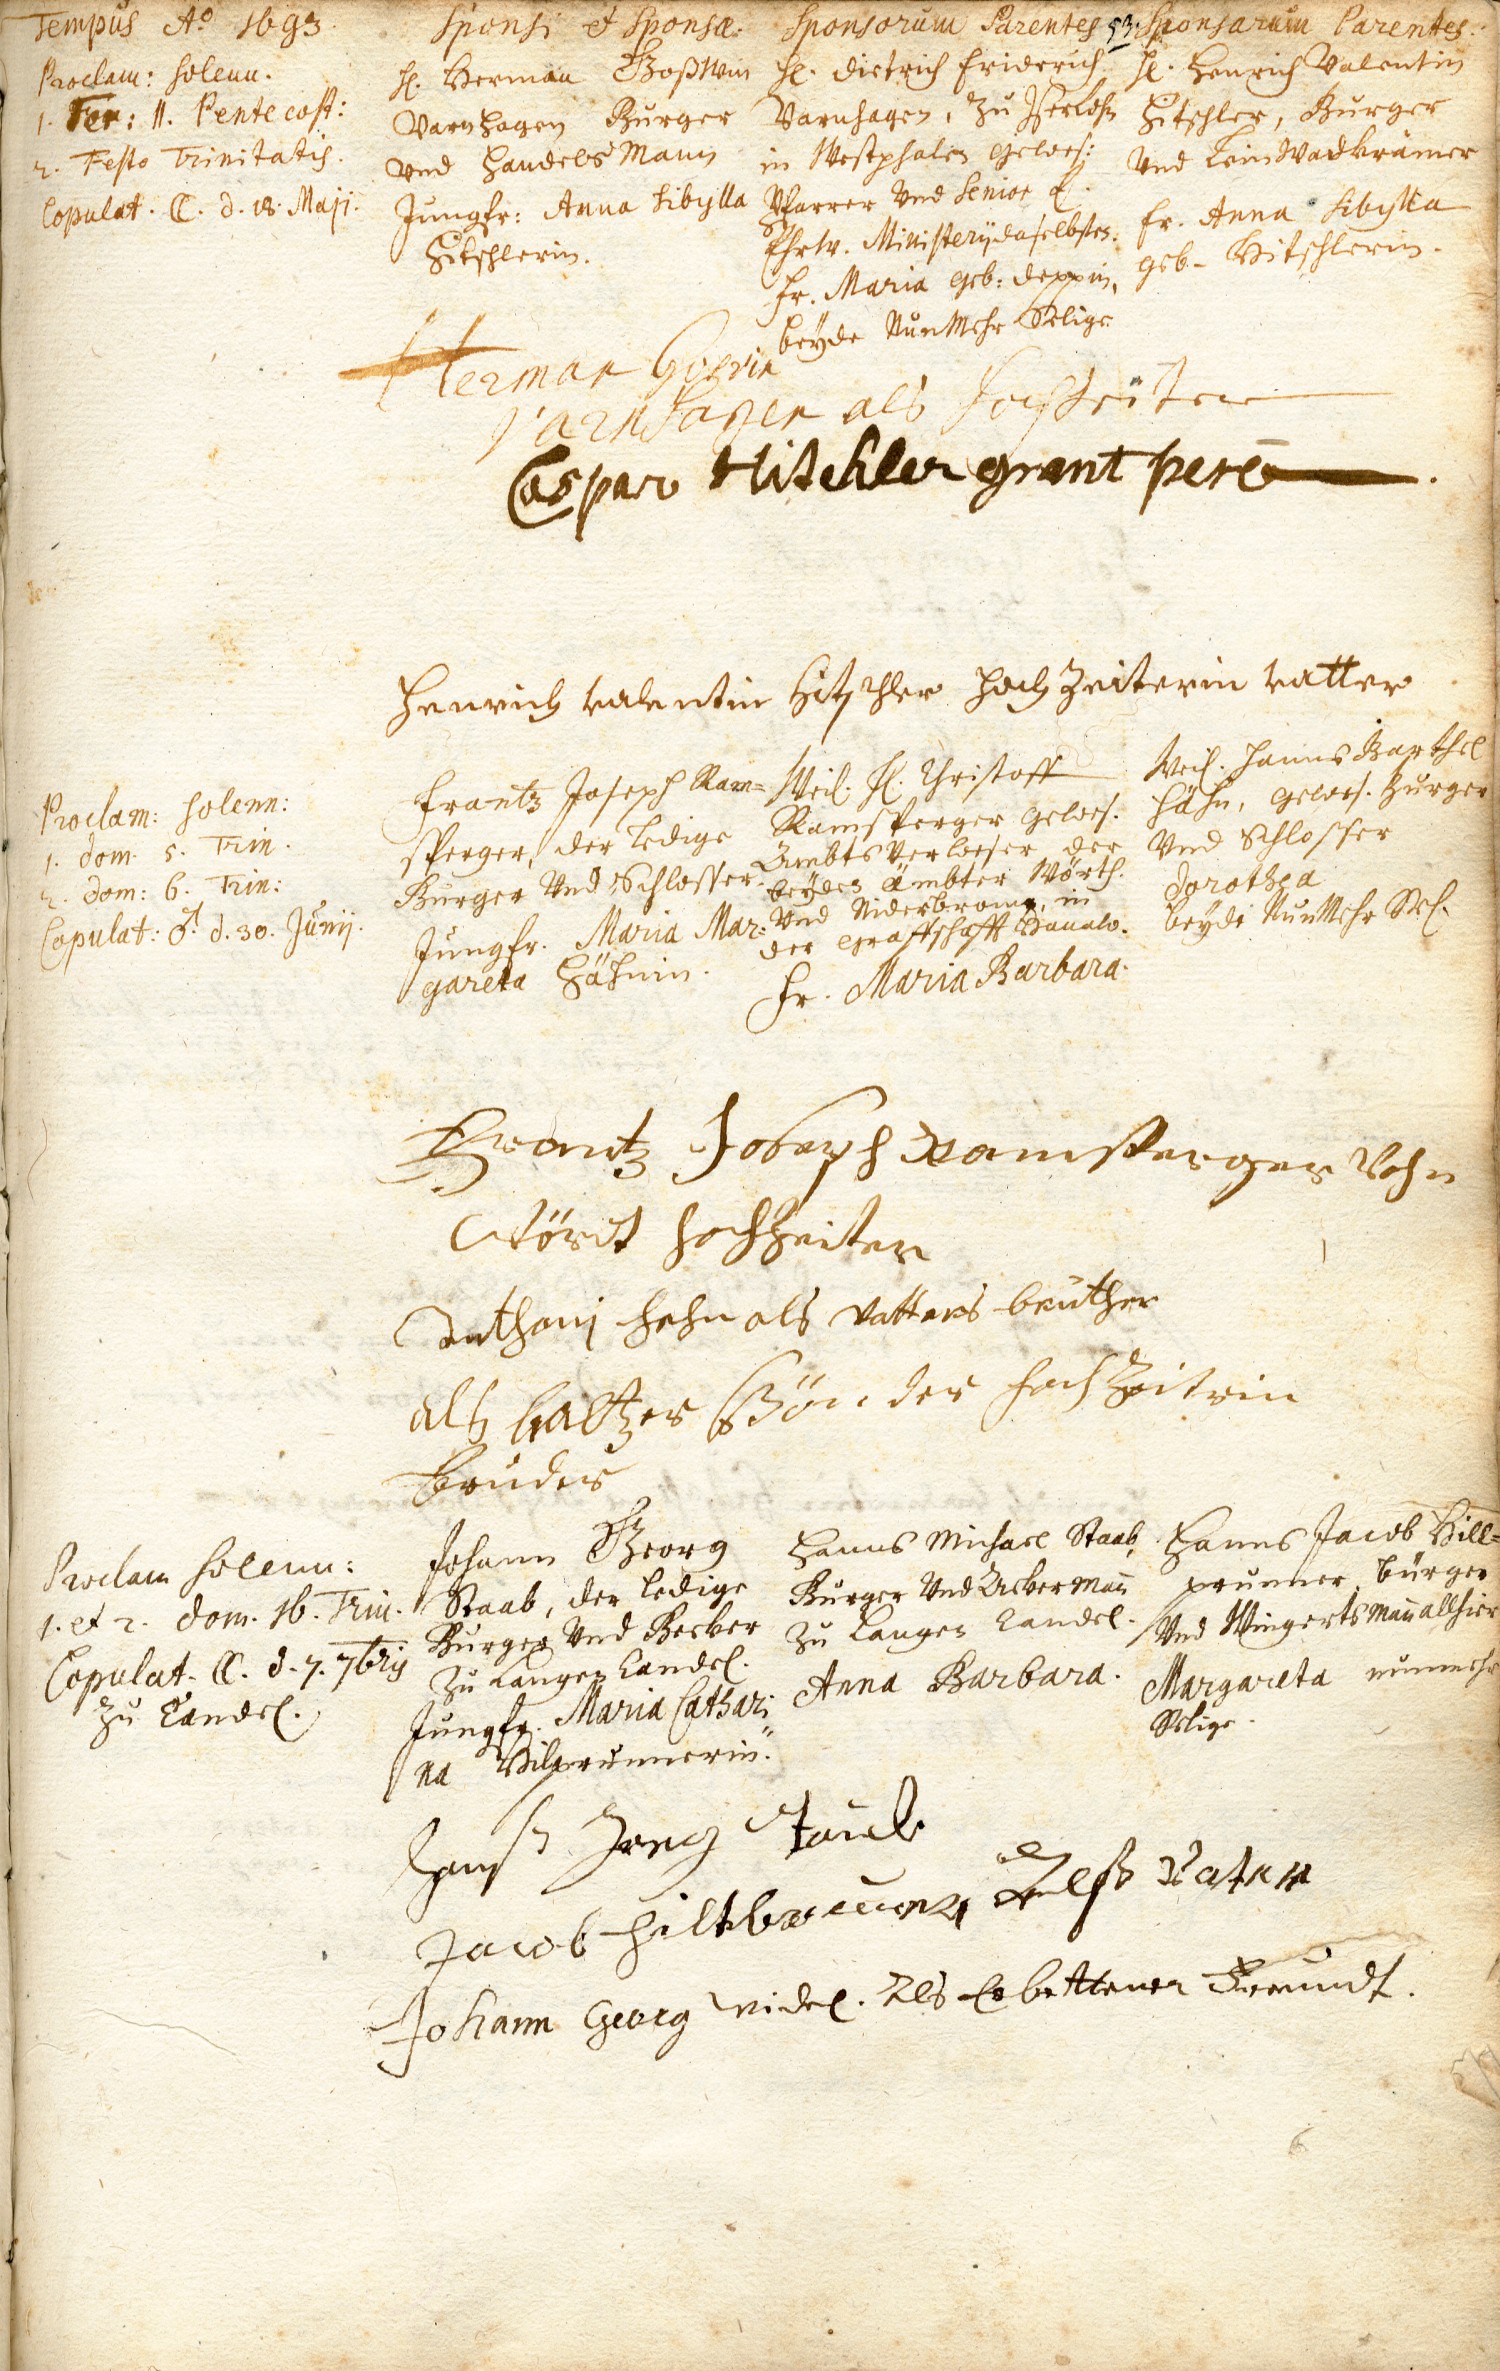 Tempus Aº 1693.
Sponsi et Sponsæ.
Sponsorum Parentes
53.
Sponsarum Parentes.
Proclam: solenn.
1. Fer: II. Pentecost:
2. Festo Trinitatis.
Copulat. ☾. d. 18. Maji.
H. Herman Goßwin
Varnhagen Burger
und Handels Mann
Jungfr: Anna Sibylla
Hitschlerin.
H. Dietrich Friderich
Varnhagen, zu Iserlohn
in Westphalen gewes:
Pfarrer und Senior E.
Ehrw. Ministerij daselbsten.
Fr. Maria geb: Deppin,
beyde NunMehr Selige
H. Henrich Valentin
Hitschler, Burger
und Leinwadkrämer
Fr. Anna Sibylla
geb. Hitschlerin.
Herman Goswin
Varnhagen als Hochzeiter
Caspar Hitschler grant pere
Henrich valentin Hitzschler Hochzeiterin vatter
Proclam: solenn:
1. Dom. 5. Trin.
2. Dom: 6. Trin:
Copulat: ♂. d. 30. Junij.
Frantz Joseph Ram=
sperger, der Ledige
Burger und Schlosser.
Jungfr. Maria Mar=
gareta Hähnin.
Weil. H. Christoff
Ramsperger gewes.
Ambts Verweser der
beyden Ämbter Wörth.
und Niderbronn, in
der Graffschafft Hanaw.
Fr. Maria Barbara.
Weil. Hanns Barthel
Hähn, gewes. Burger
und Schlosser
Dorothea
beyde NunMehr Sel.
Frantz Joseph Ramsperger Vohn
Wördt Hochzeiter
Anthonj Hehn als vatters bruther
als baltzer Hön der Hochzeitrin
bruder
Proclam solenn:
1. et 2. Dom. 16. Trin.
Copulat. ☾. d. 7. 7bris
zu Candel.
Johann Georg
Staab, der Ledige
Burger und Becker
zu Langen Candel.
Jungfr. Maria Cathari
na Hilprunnerin.
Hanns Michael Staab,
Burger und Ackermann
zu Langen Candel.
Anna Barbara.
Hanns Jacob Hill=
prunner, bürger
und Wingertsmann allhier
Margareta nunmehr
Selige.
Hanß Jerg Staub
Jacob Hiltbrunner Alß Vater
Johann Georg Widel. Als Erbettener Freundt.